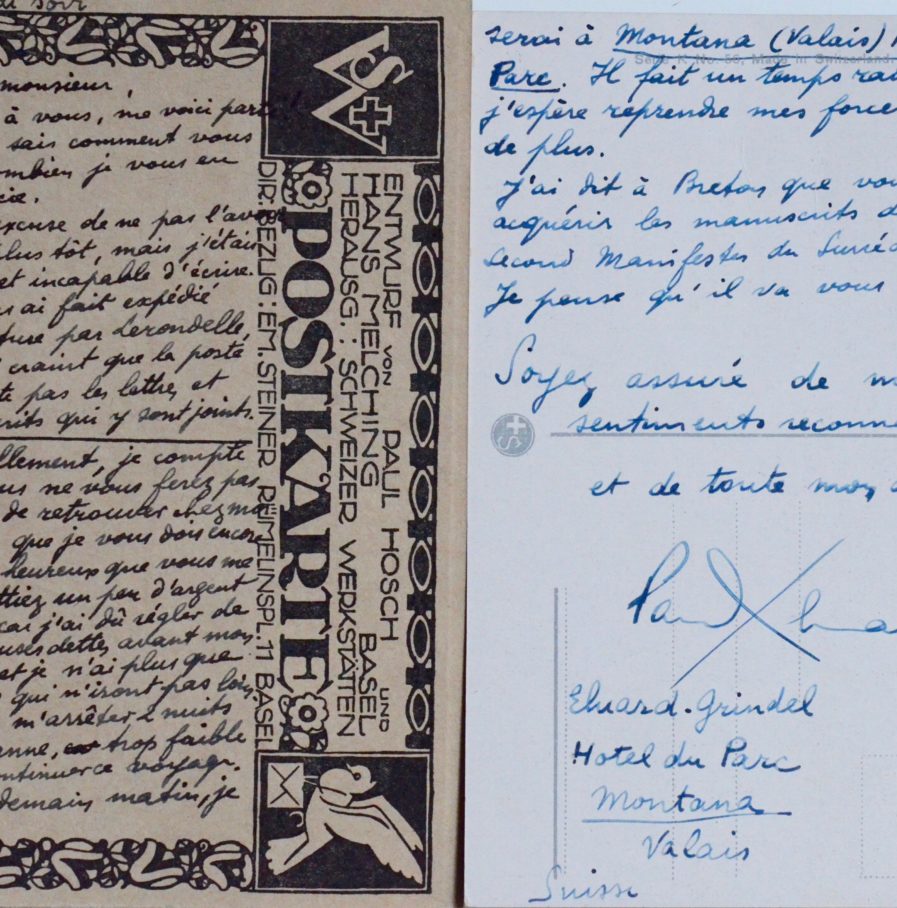 soir
monsieur,
à vous, me voici parti!
sais comment vous
combien je vous en
cie.
excuse de ne pas l'avoir
plus tôt, mais j'étais
et incapable d'écrire.
ai fait expédié
par Lerondelle,
craint que la poste
pas les lettres et
crits qui y sont joints.
llement, je compte
us ne vous ferez pas
de retrouver chez moi
que je vous dois encore
heureux que vous me
ttiez un peu d'argent
car j'ai dû régler de
uses dettes avant mon
et je n'ai plus que
qui n'iront pas loin,
m'arrêter 2 nuits
anne, trop faible
ontinuer ce voyage.
demain matin, je
SW
DIR. BEZUG: EM. STEINER REIMELINSPL. 11 BASEL
POSTKARTE
HERAUSG.: SCHWEIZER WERKSTÄTTEN
HANS MELCHING BASEL
ENTWURF VON PAUL HOSCH UND
serai à Montana (Valais)
Serie K No. 56, Made in Switzerland.
Parc. Il fait un temps
j'espère reprendre mes forces
de plus.
J'ai dit à Breton que vous
acquérir les manuscrits d
Second Manifestes du Surré
Je pense qu'il va vous
Soyez assuré de
sentiments reconn
et de toute mon
Paul
Eluard-Grindel
Hotel du Parc
Montana
Valais
Suisse